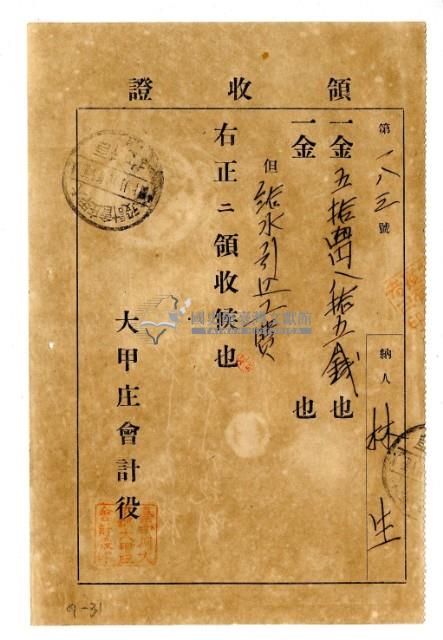 領收證
第一八三號
納人 林生
一金五拾四円八拾五錢也
一金 也
但 給水引込工費
右正ニ領收候也
大甲庄會計役
國史館臺灣文獻館
9-31